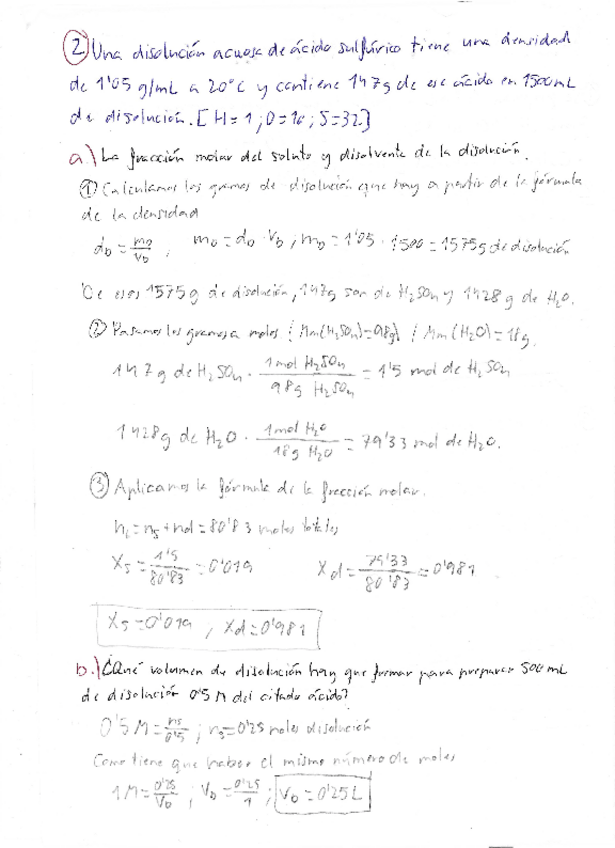 2 Una disolución acuosa de ácido sulfúrico tiene una densidad
de 1'05 g/mL a 20°C y contiene 147g de ese ácido en 1500 mL
de disolución. [H=1; O=16; S=32]
a) La fracción molar del soluto y disolvente de la disolución.
① Calculamos los gramos de disolución que hay a partir de la fórmula
de la densidad
dD = mD/VD ; mD = dD · VD ; mD = 1'05 · 1500 = 1575g de disolución
De esos 1575g de disolución, 147g son de H2SO4 y 1428g de H2O.
② Pasamos los gramos a moles (Mm(H2SO4)=98g) / Mm(H2O)=18g.
147g de H2SO4 · 1mol H2SO4/98g H2SO4 = 1'5 mol de H2SO4
1428g de H2O · 1mol H2O/18g H2O = 79'33 mol de H2O.
③ Aplicamos la fórmula de la fracción molar.
ni = ns + nd = 80'83 moles totales
Xs = 1'5/80'83 = 0'019 Xd = 79'33/80'83 = 0'981
Xs = 0'019 , Xd = 0'981
b.) ¿Qué volumen de disolución hay que tomar para preparar 500 mL
de disolución 0'5 M del citado ácido?
0'5 M = ns/0'5 ; ns = 0'25 moles disolución
Como tiene que haber el mismo número de moles
1M = 0'25/VD ; VD = 0'25/1 ; VD = 0'25 L